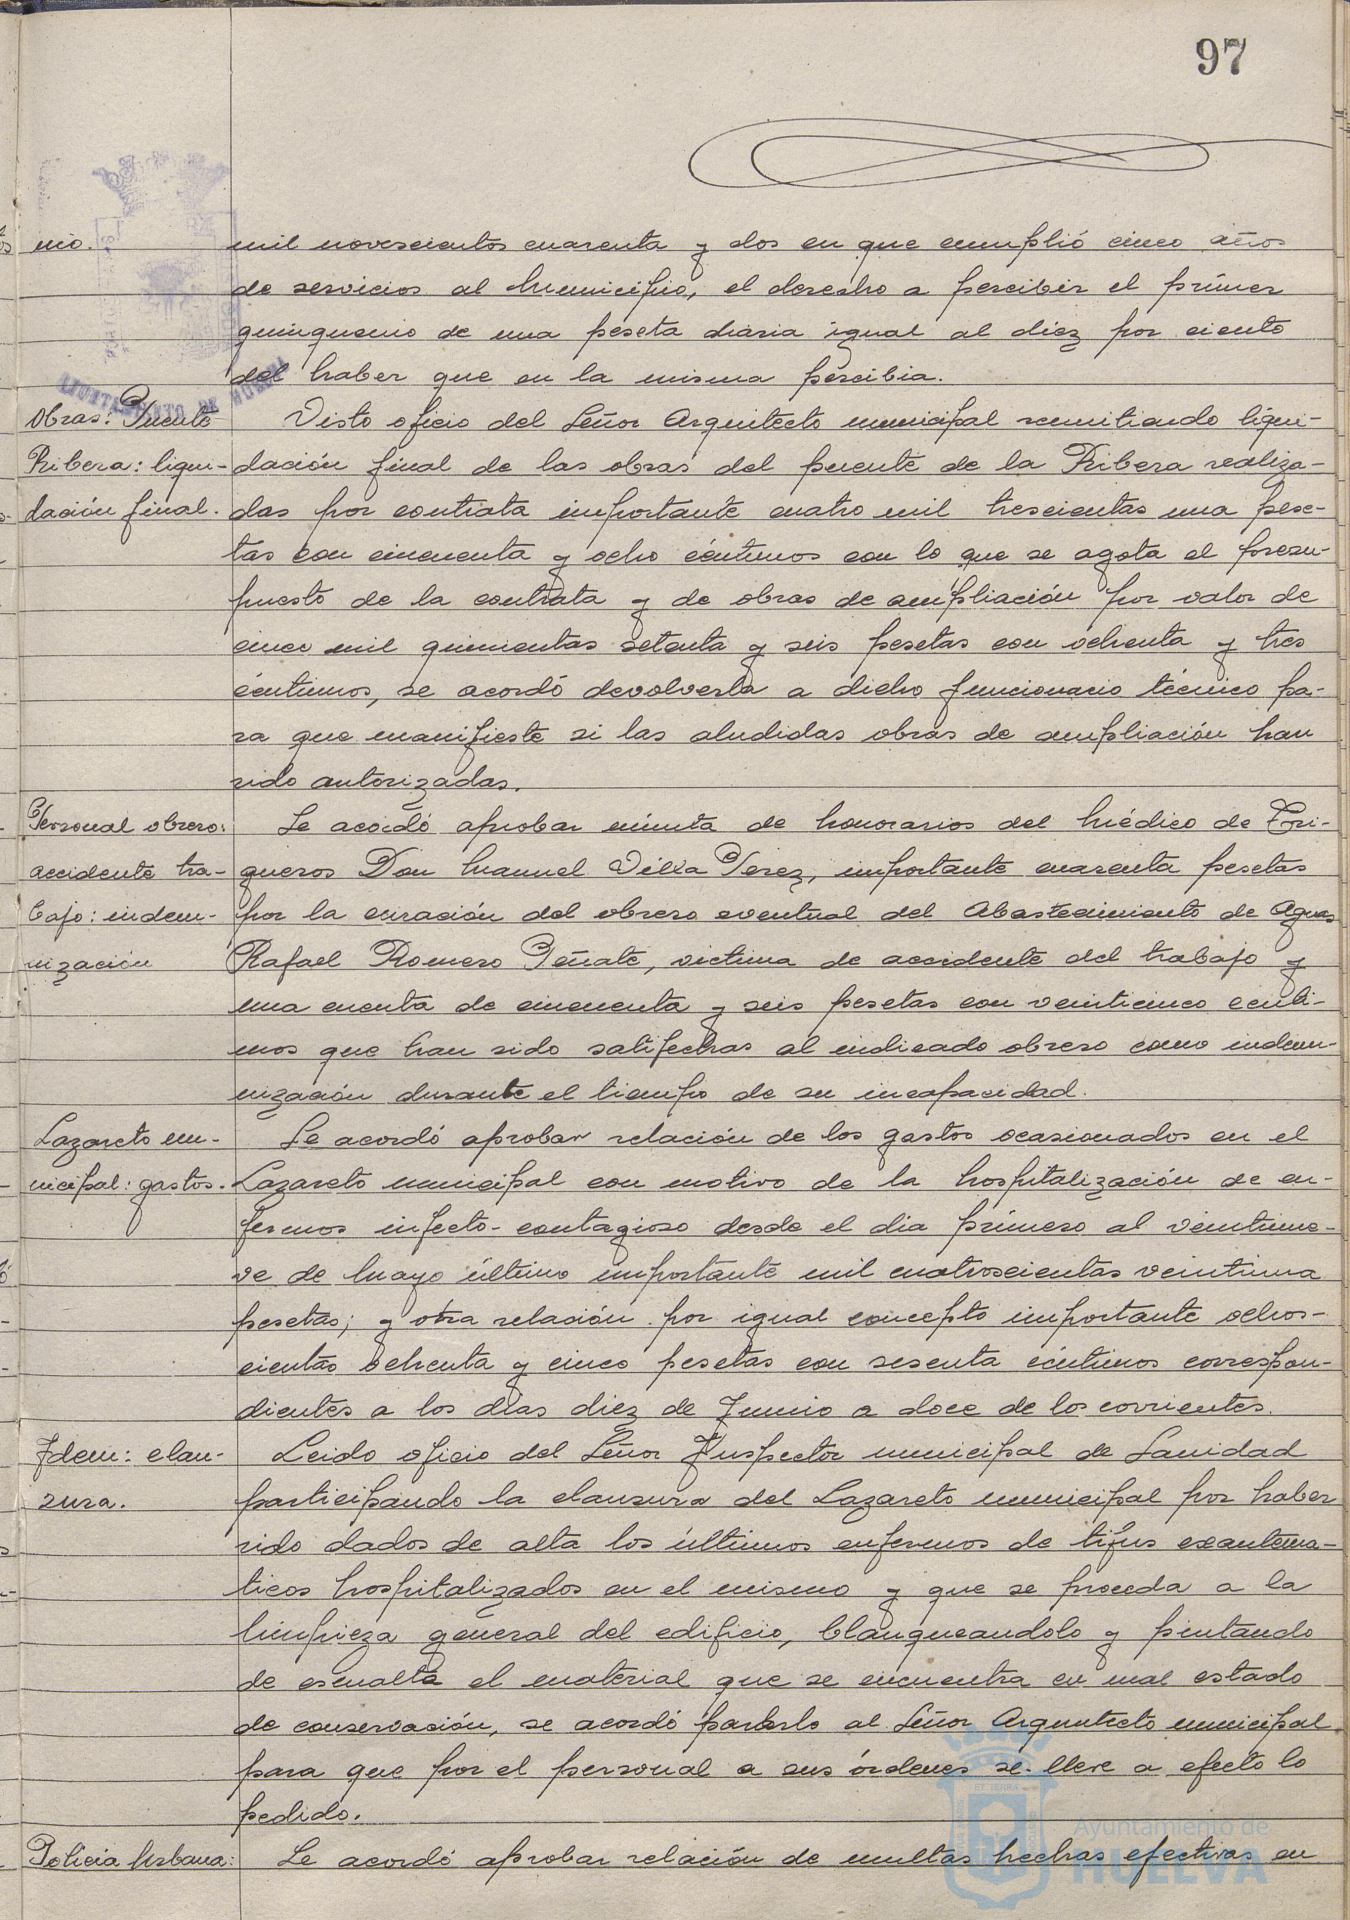 97
nio.
mil novescientos cuarenta y dos en que cumplió cinco años
de servicios al Municipio, el derecho a percibir el primer
quinquenio de una peseta diaria igual al diez por ciento
del haber que en la misma percibia.
AYUNTAMIENTO DE HUELVA
Obras: Puente
Ribera: liqui-
dación final.
Visto oficio del Señor Arquitecto municipal remitiendo liqui-
dación final de las obras del puente de la Ribera realiza-
das por contrata importante cuatro mil trescientas una pese-
tas con cincuenta y ocho céntimos con lo que se agota el presu-
puesto de la contrata y de obras de ampliación por valor de
cinco mil quinientas setenta y seis pesetas con ochenta y tres
céntimos, se acordó devolverla a dicho funcionario técnico pa-
ra que manifieste si las aludidas obras de ampliación han
sido autorizadas.
Personal obrero:
accidente tra-
bajo: indem-
nización
Se acordó aprobar minuta de honorarios del Médico de Tri-
gueros Don Manuel Villa Perez, importante cuarenta pesetas
por la curación del obrero eventual del Abastecimiento de Aguas
Rafael Romero Peñate, victima de accidente del trabajo y
una cuenta de cincuenta y seis pesetas con veinticinco centi-
mos que han sido satifechas al indicado obrero como indem-
nización durante el tiempo de su incapacidad.
Lazareto mu-
nicipal: gastos.
Se acordó aprobar relación de los gastos ocasionados en el
Lazareto municipal con motivo de la hospitalización de en-
fermos infecto-contagioso desde el dia primero al veintinue-
ve de Mayo último importante mil cuatroscientas veintiuna
pesetas; y otra relasión por igual concepto importante ochos-
cientas ochenta y cinco pesetas con sesenta céntimos correspon-
dientes a los días diez de Junio a doce de los corrientes.
Idem: clau-
sura.
Leido oficio del Señor Inspector municipal de Sanidad
participando la clausura del Lazareto municipal por haber
sido dados de alta los últimos enfermos de tifus exantema-
ticos hospitalizados en el mismo y que se proceda a la
limpieza general del edificio, blanqueandolo y pintando
de esmalte el material que se encuentra en mal estado
de conservasión, se acordó pasarlo al Señor Arquitecto municipal
para que por el personal a sus órdenes se lleve a efecto lo
pedido.
Policia Urbana:
Se acordó aprobar relación de multas hechas efectivas en
Ayuntamiento de
HUELVA